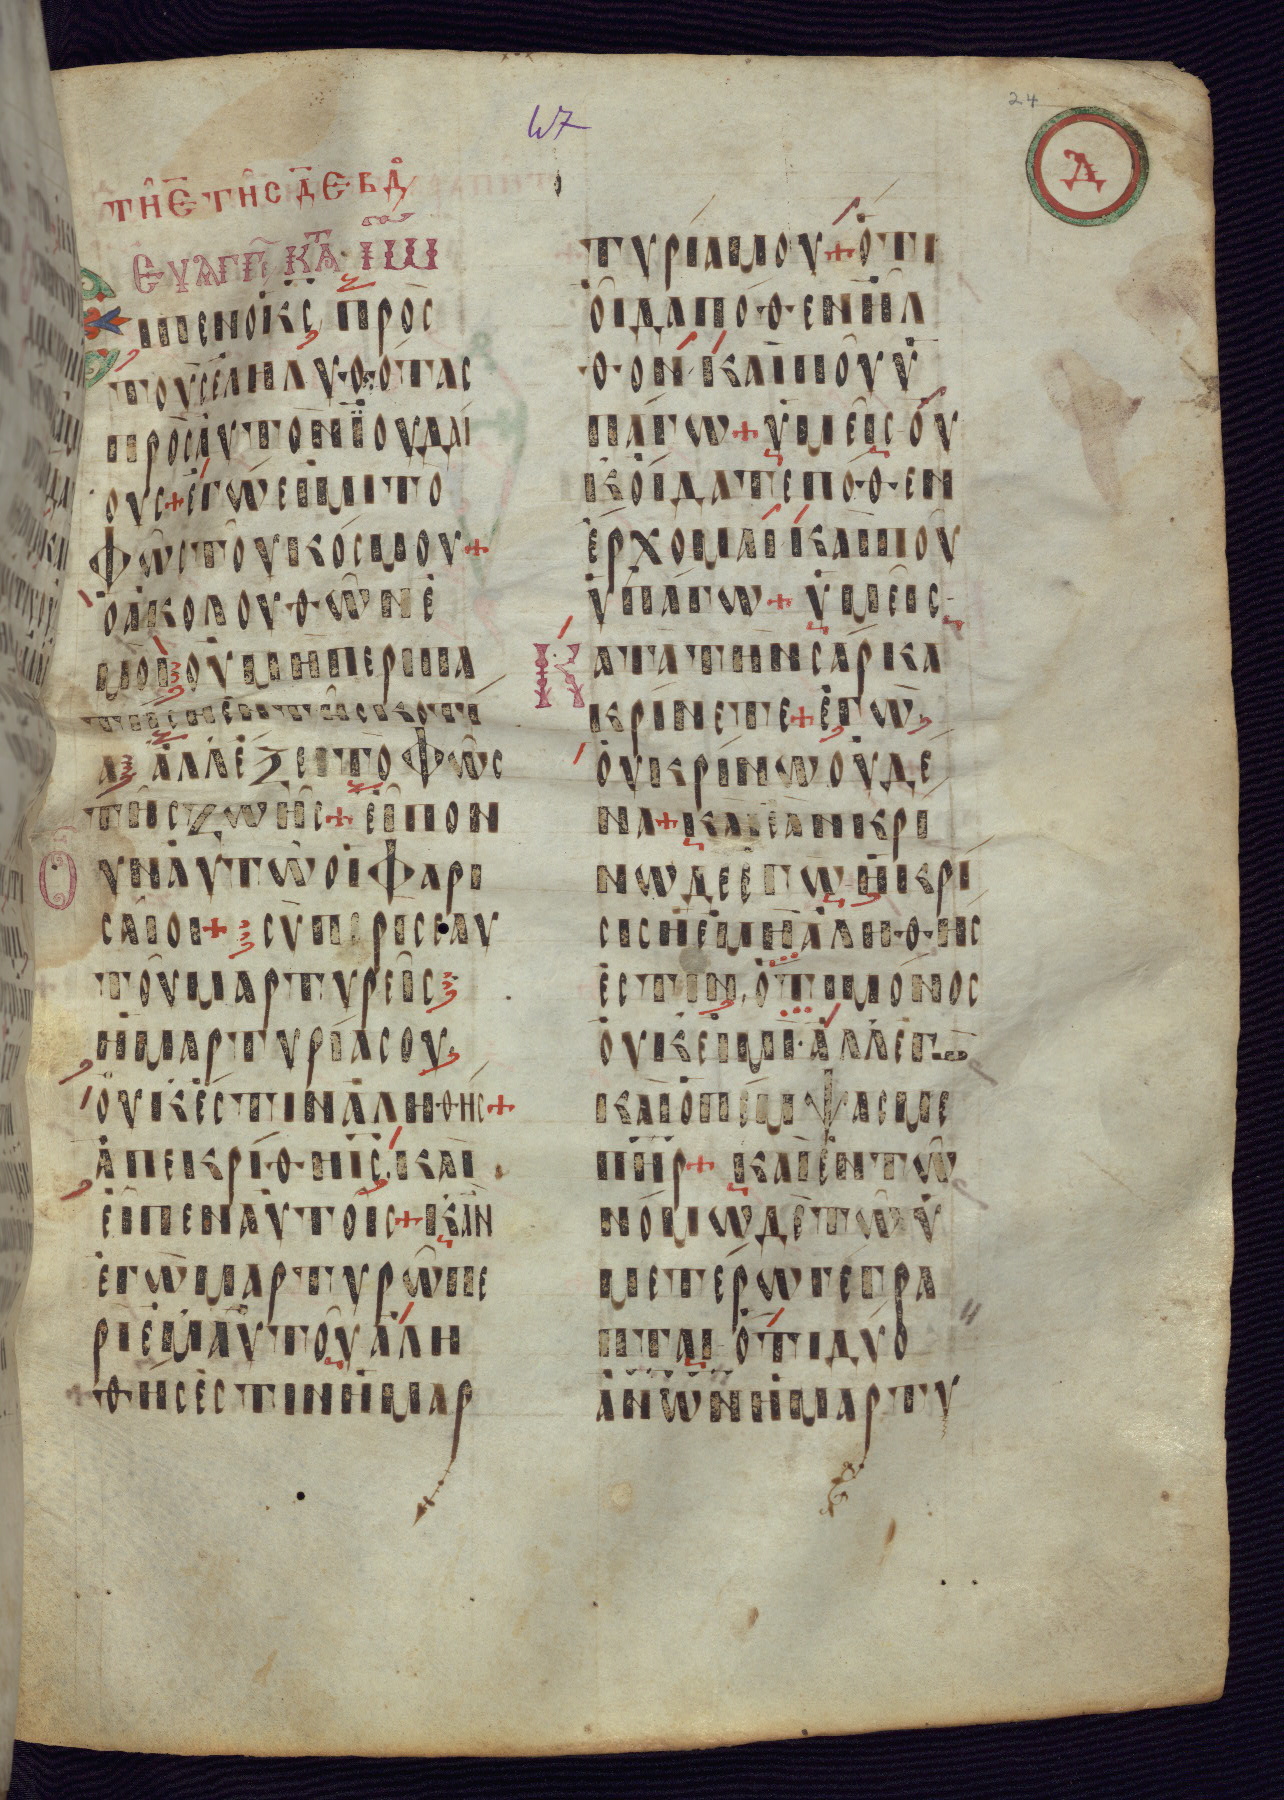 24
47
Δ
ΤΗ Ε ΤΗС Δ ΕΒΔ
ΕΥΑΓΓ ΚΤΑ ΙΩ
ΙΠΕΝΟΚС ΠΡΟС
ΤΟΥСΕΛΗΛΥΘΟΤΑС
ΠΡΟСΑΥΤΟΝΪΟΥΔΑΙ
ΟΥС+ΕΓΩΕΙΜΙΤΟ
ΦΩСΤΟΥΚΟСΜΟΥ+
ΟΑΚΟΛΟΥΘΩΝΕ
ΜΟΙΟΥΜΗΠΕΡΙΠΑ
ΤΗСΕΙΕΝΤΗСΚΟΤΙ
ΑΑΛΛΕΞΕΙΤΟΦΩС
ΤΗСΖΩΗС+ΕΙΠΟΝ
ΟΥΝΑΥΤΩΟΙΦΑΡΙ
СΑΙΟΙ+СΥΠΕΡΙСΕΑΥ
ΤΟΥΜΑΡΤΥΡΕΙС
ΗΜΑΡΤΥΡΙΑСΟΥ
ΟΥΚΕСΤΙΝΑΛΗΘΗС+
ΑΠΕΚΡΙΘΗΙСΚΑΙ
ΕΙΠΕΝΑΥΤΟΙС+ΚΑΝ
ΕΓΩΜΑΡΤΥΡΩΠΕ
ΡΙΕΜΑΥΤΟΥΑΛΗ
ΘΗСΕСΤΙΝΗΜΑΡ
ΤΥΡΙΑΜΟΥ+ΟΤΙ
ΟΙΔΑΠΟΘΕΝΗΛ
ΘΟΝΚΑΙΠΟΥΥ
ΠΑΓΩ+ΥΜΕΙСΟΥ
ΚΟΙΔΑΤΕΠΟΘΕΝ
ΕΡΧΟΜΑΙΚΑΙΠΟΥ
ΥΠΑΓΩ+ΥΜΕΙС
ΚΑΤΑΤΗΝСΑΡΚΑ
ΚΡΙΝΕΤΕ+ΕΓΩ
ΟΥΚΡΙΝΩΟΥΔΕ
ΝΑ+ΚΑΙΕΑΝΚΡΙ
ΝΩΔΕΕΓΩΗΚΡΙ
СΙСΗΕΜΗΑΛΗΘΗС
ΕСΤΙΝΟΤΙΜΟΝΟС
ΟΥΚΕΙΜΙ·ΑΛΛΕΓΩ
ΚΑΙΟΠΕΜΨΑСΜΕ
ΠΗΡ+ΚΑΙΕΝΤΩ
ΝΟΜΩΔΕΤΩΥ
ΜΕΤΕΡΩΓΕΓΡΑ
ΠΤΑΙΟΤΙΔΥΟ
ΑΝΩΝΗΜΑΡΤΥ